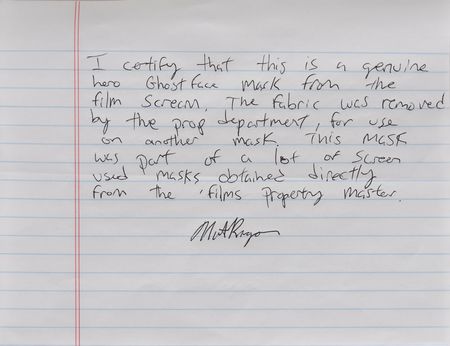 I certify that this is a genuine
hero Ghost Face mask from the
film Scream. The fabric was removed
by the prop department, for use
on another mask. This mask
was part of a lot of screen
used masks obtained directly
from the films property master.